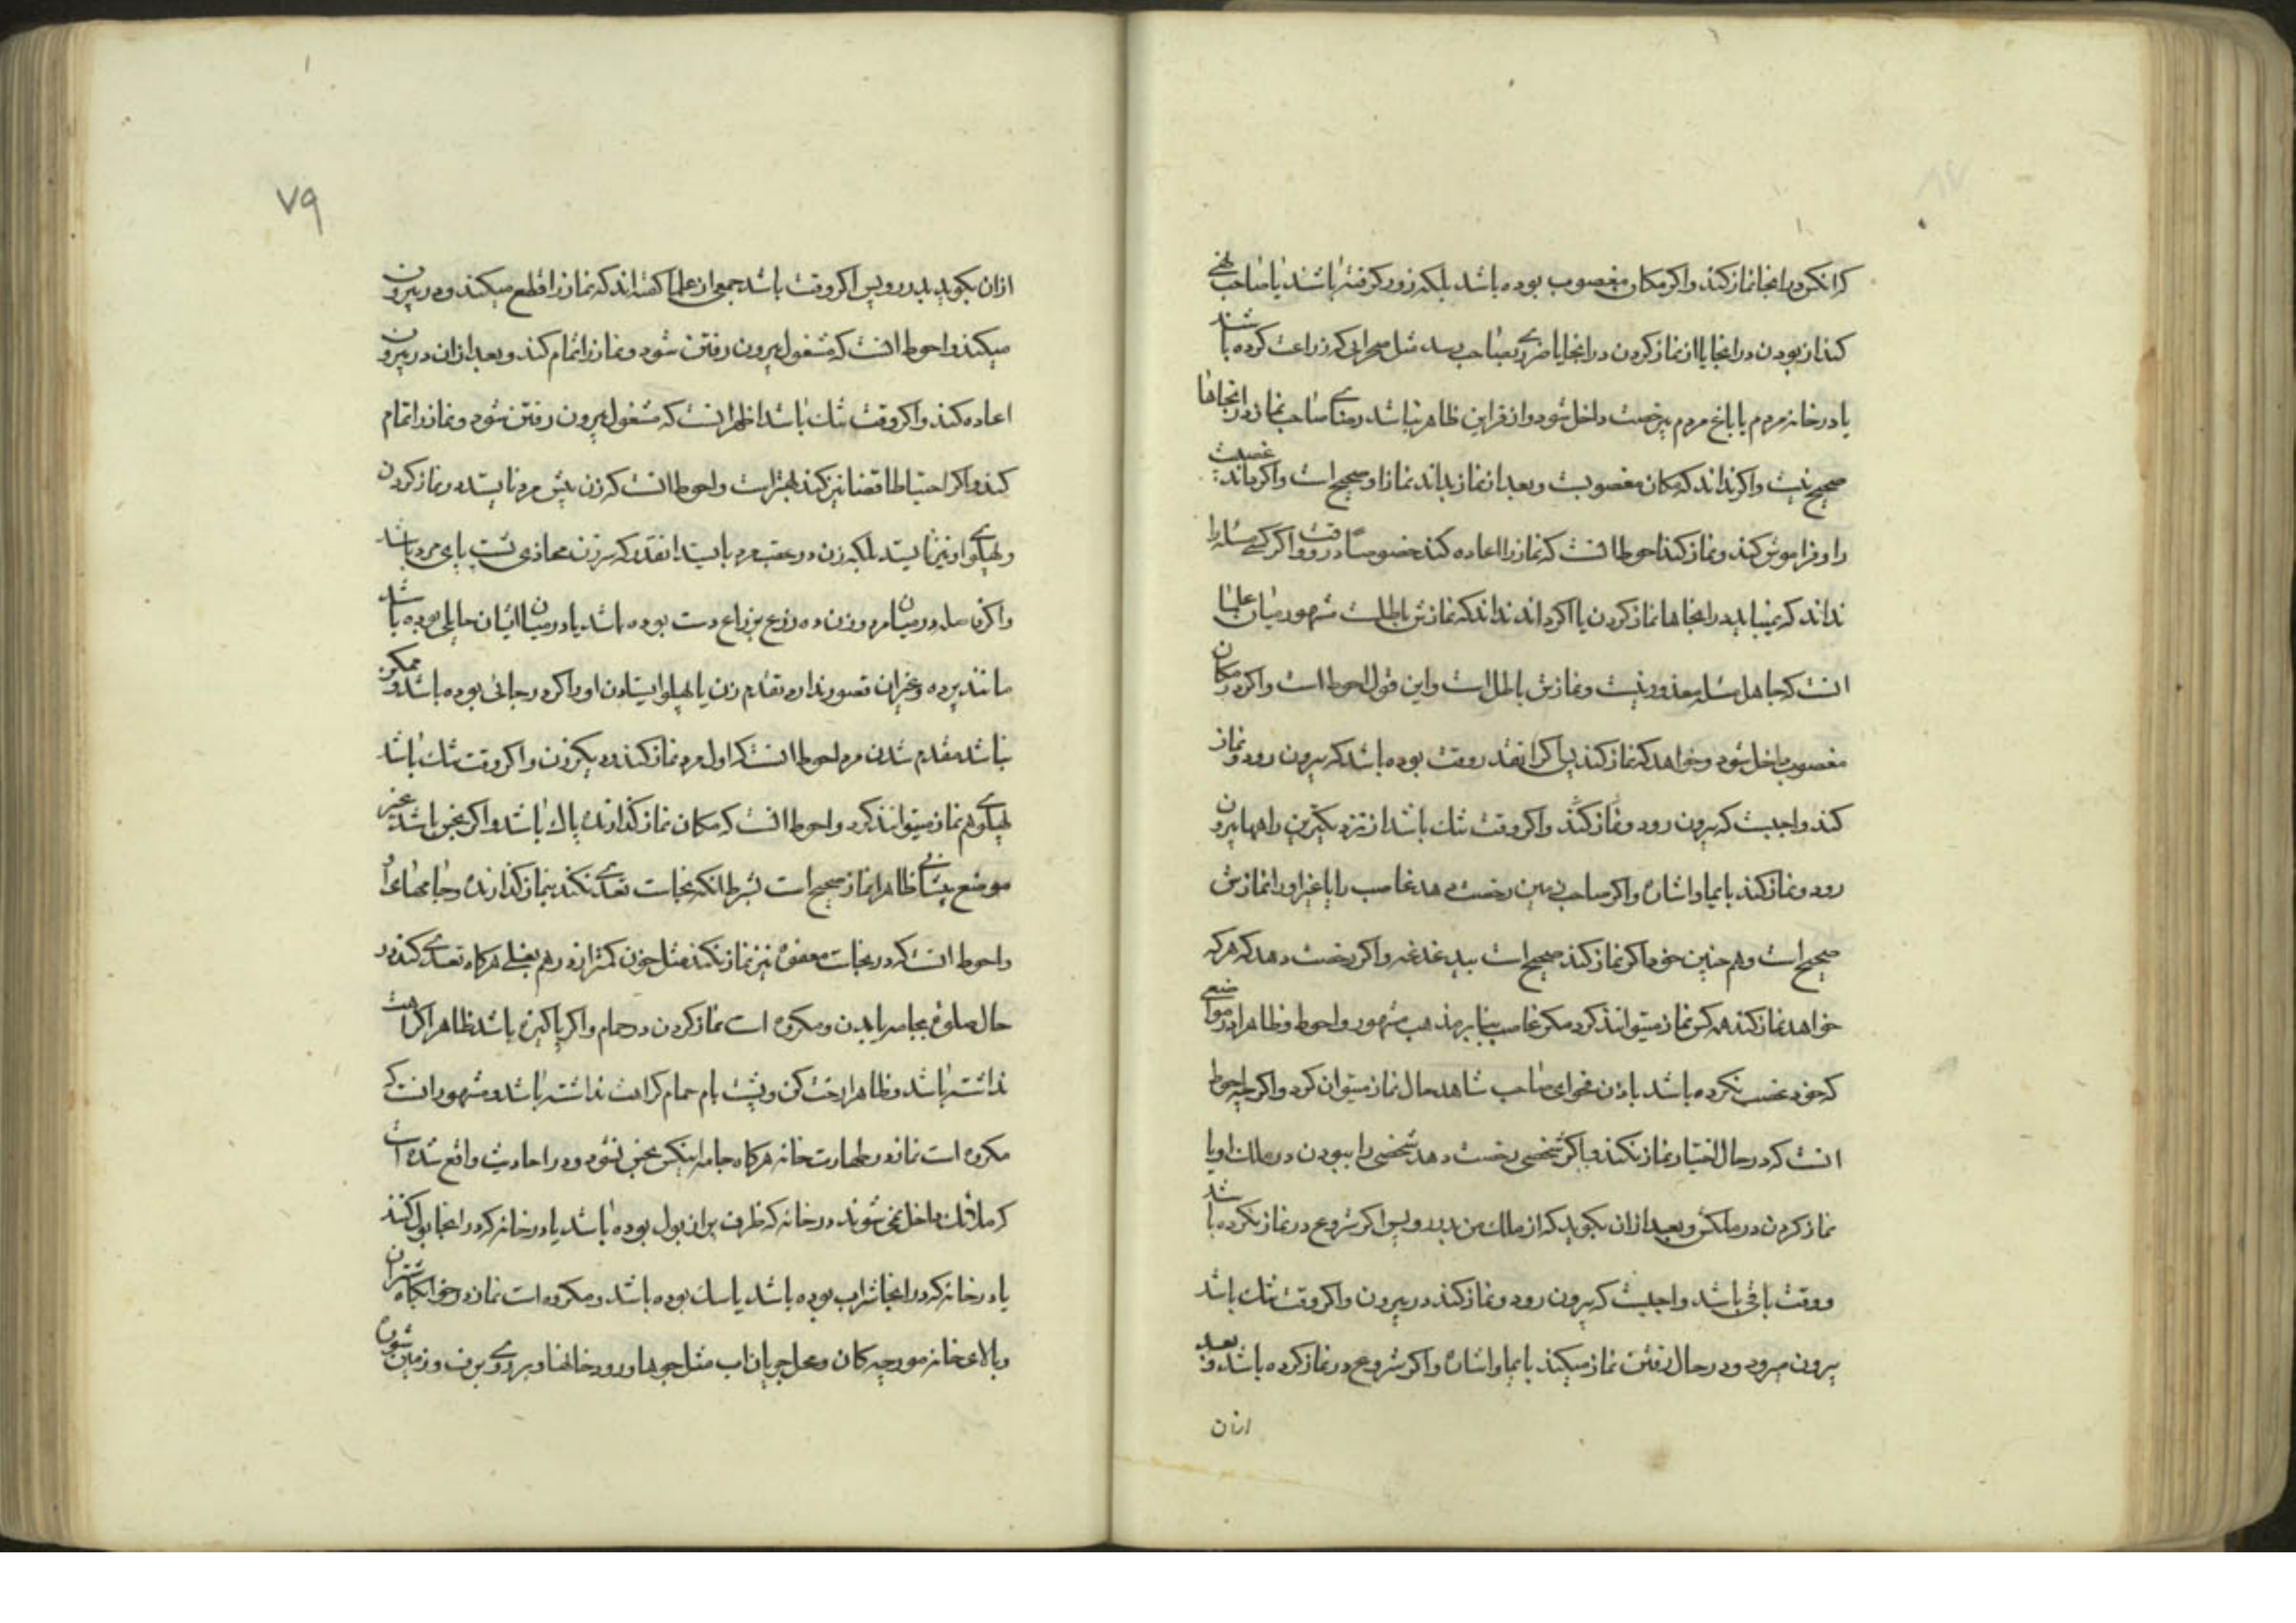 کرانکرد رانجا نماز کند واکر مکان مغصوب بوده باشد بلکه بزور کرفته باشند یا صاحب نهی
کند از بودن در انجا یا از نماز کردن در انجا یا ضرری بصاحب رسد مثل صحرای که زراعت کرده باشند
یا در خانه مردم یا باغ مردم بی رخصت داخل شود و از قراین ظاهر نباشد رضای صاحب نماز در انجاها
صحیح نیست واکر نداند که مکان مغصوبست و بعد از نماز بداند نماز او صحیح است واکر داند غصبیت
را و فراموش کند و نماز کند احوط انست که نماز را اعاده کند خصوصا در وقت واکر کسی مسئله را
نداند که نمیباید در اینجاها نماز کردن یا اکر داند نداند که نمازش باطلست مشهور میان علما
انست که جاهل مسئله معذور نیست و نمازش باطل است و این قول احوط است واکر در مکان
مغصوب داخل شود و خواهد که نماز کند پس اکر انقدر وقت بوده باشد که بیرون رود و نماز
کند واجبست که بیرون رود و نماز کند واکر وقت تنک باشد از نزدیکترین راهها بیرون
رود و نماز کند بایما و اشاره واکر صاحب زمین رخصت دهد غاصب را یا غیر او را نمازش
صحیح است و هم چنین خود اکر نماز کند صحیح است بی دغدغه واکر رخصت دهد که هرکه
خواهد نماز کند همه کس نماز میتواند کرد مکر غاصب بنا بر مذهب مشهور واحوط و ظاهرا در مواضعی
که خود غصب نکرده باشد باذن فحوای صاحب شاهد حال نماز میتوان کرد واکرچه احوط
انست که در حال اختیار نماز نکند واکر شخصی رخصت دهد شخصی را ببودن در ملک او یا
نماز کردن در ملکش و بعد از ان بکوید که از ملک من بدر رو پس اکر شروع در نماز نکرده باشد
و وقت باقی باشد واجبست که بیرون رود و نماز کند در بیرون واکر وقت تنک باشد
بیرون میرود و در حال رفتن نماز میکند بایما و اشاره واکر شروع در نماز کرده باشد و بعد
ازان
۷۹
ازان بکوید بدر رو پس اکر وقت باشد جمعی از علما کفته اند که نماز را قطع میکند و در بیرون
میکند واحوط انست که مشغول بیرون رفتن شود و نماز را تمام کند و بعد از ان در بیرون
اعاده کند واکر وقت تنک باشد اظهر انست که مشغول بیرون رفتن شود و نماز را تمام
کند واکر احتیاطا قضا نیز کند بهتر است واحوط انست که زن پیش مرد نایستد در نماز کردن
و پهلوی او نیز نایستد بلکه زن در عقب مرد بایستد انقدر که سر زن محاذی پشت پای مرد باشد
واکر فاصله در میان مرد و زن ده ذرع بذراع دست بوده باشد یا در میان ایشان حایلی بوده باشد
مانند پرده و غیر ان قصور ندارد تقدم زن یا پهلو ایستادن او واکر در جائی بوده باشد و ممکن
نباشد مقدم شدن مرد احوط انست که اول مرد نماز کند و دیکر زن واکر وقت تنک باشد
پهلوی هم نماز میتوانند کرد واحوط انست که مکان نماز کذارنده پاک باشد واکر نجس باشد غیر
موضع پیشانی ظاهرا نماز صحیح است بشرط انکه نجاست تعدی نکند بنماز کذارنده و جامهای او
واحوط انست که در نجاست معفوه نیز نماز نکند مثل خون کمتر از درهم بغلی هرکاه تعدی کند در
حال صلوة بجامه یا بدن و مکروه است نماز کردن در حمام واکر پاکیزه باشد ظاهرا کراهت
نداشته باشد و ظاهرا رخت کن و پشت بام حمام کراهت نداشته باشد و مشهور انست که
مکروه است نماز در طهارت خانه هرکاه جامه اینکس نجس نشود و در احادیث واقع شده است
که ملائک داخل نمی شوند در خانه که ظرف پر از بول بوده باشد یا در خانه که در انجا بول کنند
یا در خانه که در انجا شراب بوده باشد یا سک بوده باشد و مکروه است نماز در خوابکاه شتران
و بالای خانه مورچه کان و محل جریان اب مثل جویها و رودخانها و بر روی برف و زمین شوره